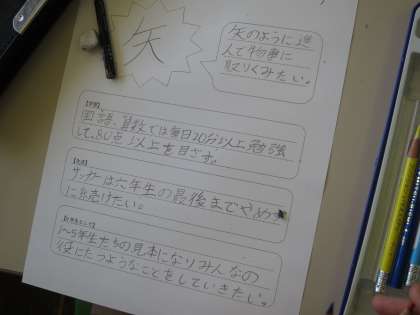 矢
矢のように進
んで物事に
取りくみたい。
【学習】
国語、算数では毎日20分以上勉強
して、80点以上を目ざす。
サッカーは六年生の最後までやめず
に続けたい。
1~5年生たちの見本になりみんなの
役にたつようなことをしていきたい。